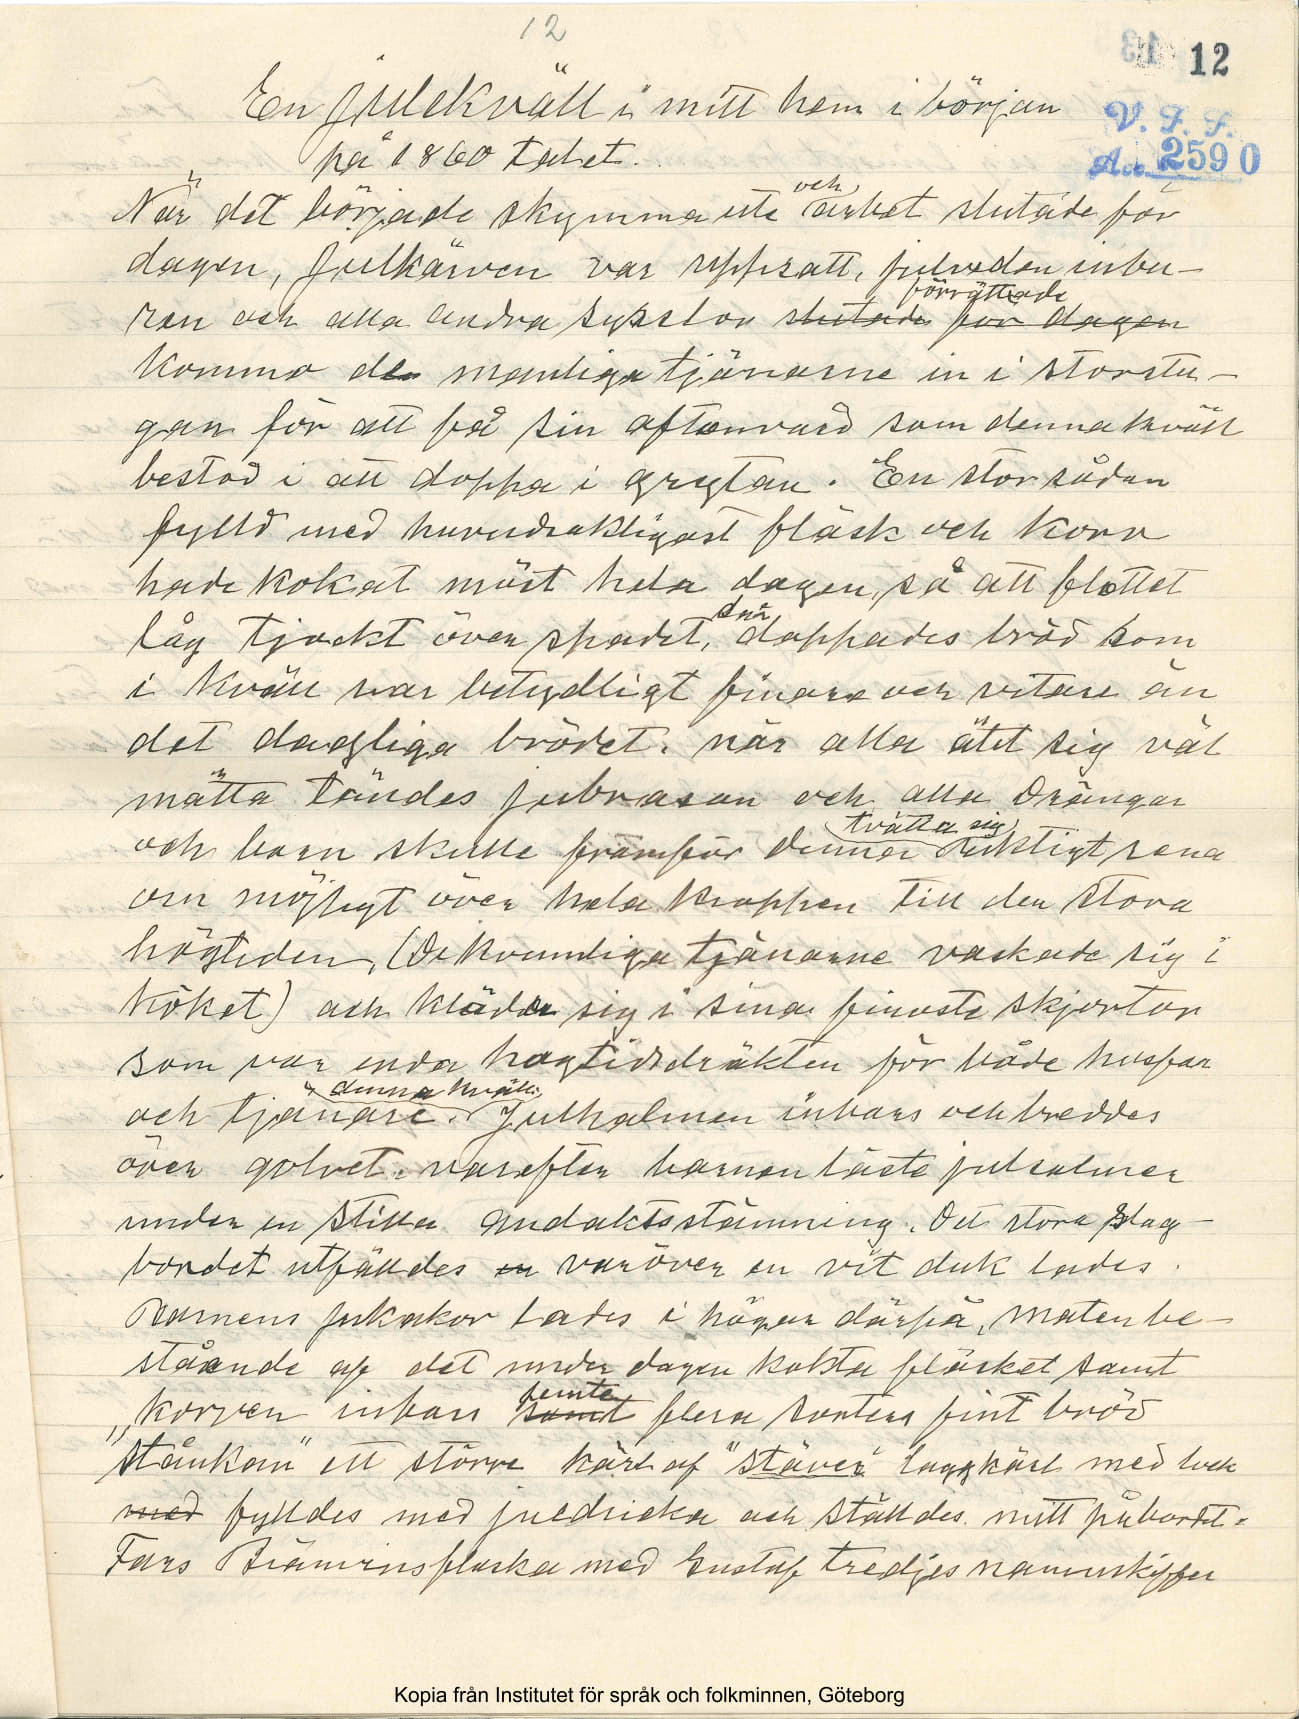 12
12
V. F. F.
Acc. 2590
En julekväll i mitt hem i början
på 1860 talet.
När det började skymma ute och arbet slutade för
dagen, Julkärven var uppsatt, julveden inbu-
ren och alla andra sysslor slutade för dagen förrättade
kommo de manliga tjänarne in i storstu-
gan för att få sin aftonvard som denna kväll
bestod i att doppa i grytan. En stor sådan
fylld med huvudsakligast fläsk och korv
hade kokat mäst hela dagen, så att flottet
låg tjockt över spadet, där doppades bröd som
i kväll var betydligt finare och vitare än
det dagliga brödet. när alla ätit sig väl
mätta tändes julbrasan och alla drängar
och barn skulle framför denna tvätta sig duktigt rena
om möjligt över hela kroppen till den stora
högtiden, (De kvinnliga tjänarne vaskade sig i
köket) och kläda sig i sina finaste skjortor
som var enda högtidsdräkten för både husfar
och tjänare denna kväll. Julhalmen inbars och breddes
över golvet. varefter barnen läste julsalmer
under en stilla andaktsstämning. Det stora slag-
bordet utfälldes en varöver en vit duk lades.
Barnens julkakor lades i högar därpå, maten be-
stående af det under dagen kokta fläsket samt
korven inbars samt jemte flera sorters fint bröd
"stånkan" ett större kärl af "stäver" laggkärl med lock
med fylldes med juldricka och ställdes mitt på bordet.
Fars Brännvinsflaska med Gustaf tredjes namnskiffer
Kopia från Institutet för språk och folkminnen, Göteborg